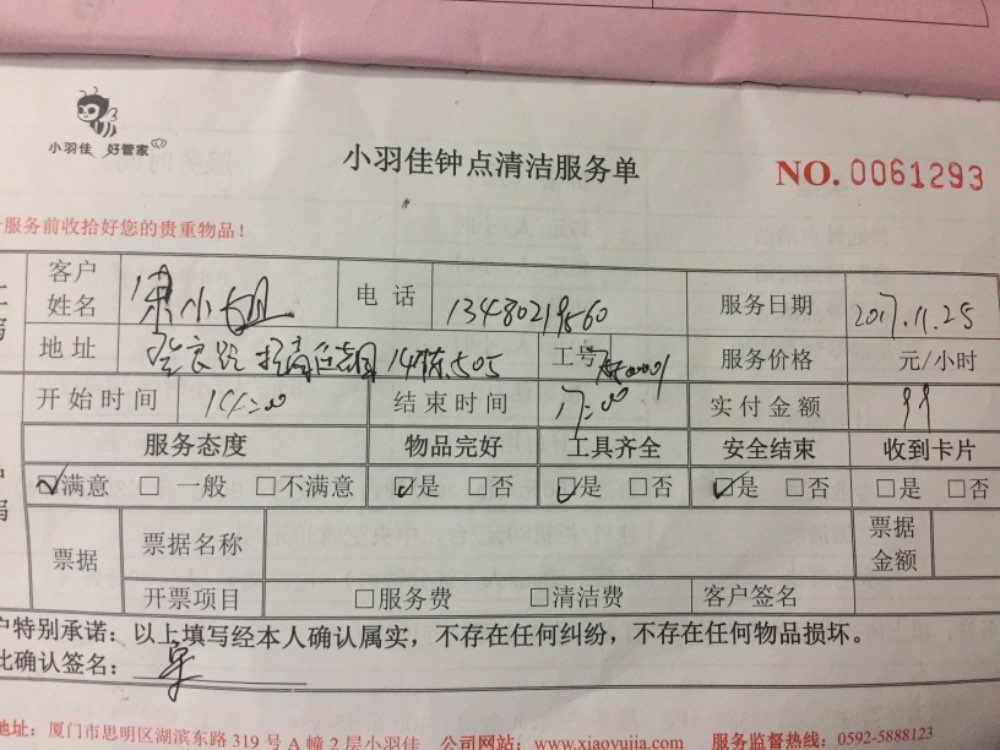 小羽佳 好管家
小羽佳钟点清洁服务单
NO. 0061293
服务前收拾好您的贵重物品！
客户姓名 小姐 电话 13480219560 服务日期 2017.11.25
地址 14栋505 工号 服务价格 元/小时
开始时间 14:00 结束时间 17:00 实付金额 99
服务态度 物品完好 工具齐全 安全结束 收到卡片
☑满意 □一般 □不满意 ☑是 □否 ☑是 □否 ☑是 □否 □是 □否
票据 票据名称 票据金额
开票项目 □服务费 □清洁费 客户签名
户特别承诺：以上填写经本人确认属实，不存在任何纠纷，不存在任何物品损坏。
此确认签名：
地址：厦门市思明区湖滨东路 319 号 A 幢 2 层小羽佳 公司网站：www.xiaoyujia.com 服务监督热线：0592-5888123